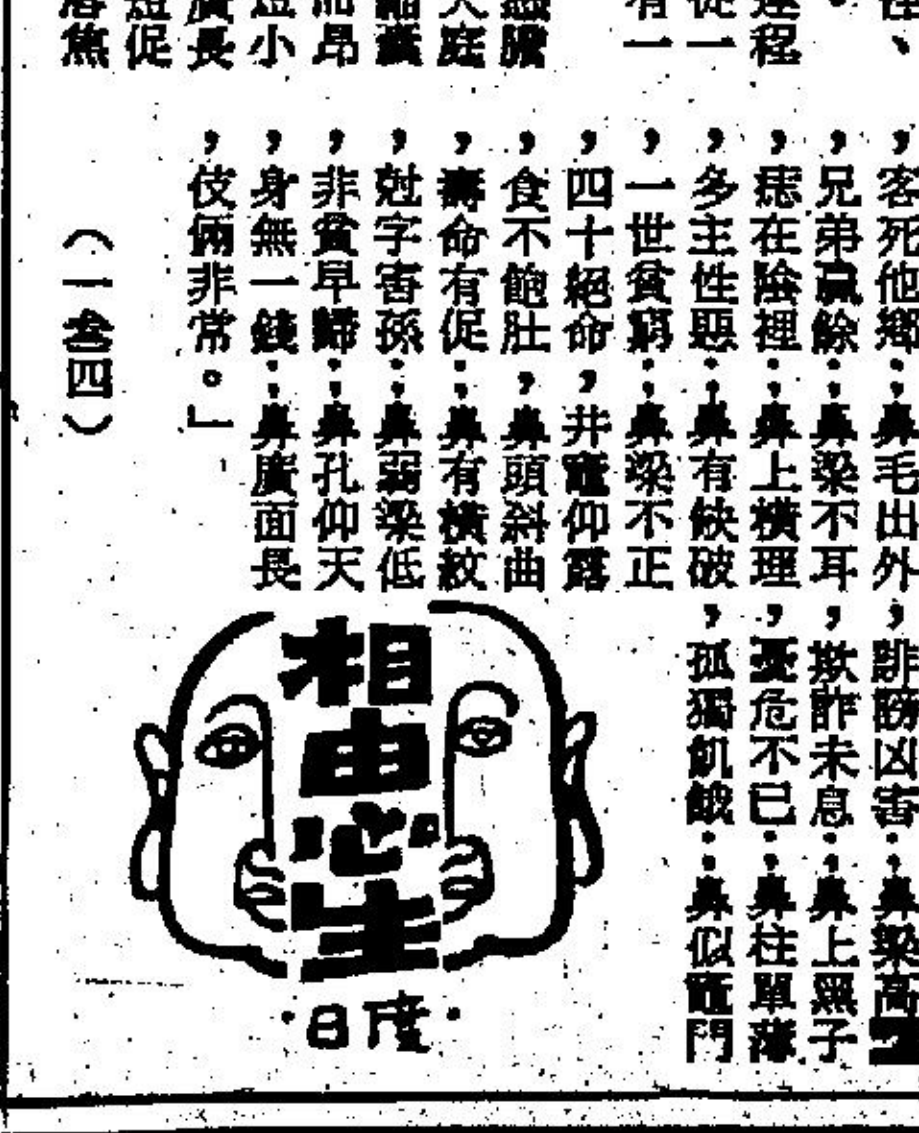 、，客死他鄉；鼻毛出外，誹謗凶害；鼻梁高
。，兄弟贏餘；鼻梁不耳，欺詐未息；鼻上黑子
運程，痣在陰裡；鼻上橫理，憂危不已；鼻柱單薄
從一，多主性惡；鼻有缺破，孤獨飢餓；鼻似竈門
有一，一世貧窮；鼻梁不正
，四十絕命，井竈仰露
膽，食不飽肚，鼻頭斜曲
天庭，壽命有促；鼻有橫紋
縮囊，尅字害孫；鼻弱梁低
昂，非貧早歸；鼻孔仰天
短小，身無一錢；鼻廣面長
廣長，伎倆非常。」
短促
焦
（一叁四）
相由心生
·日度·